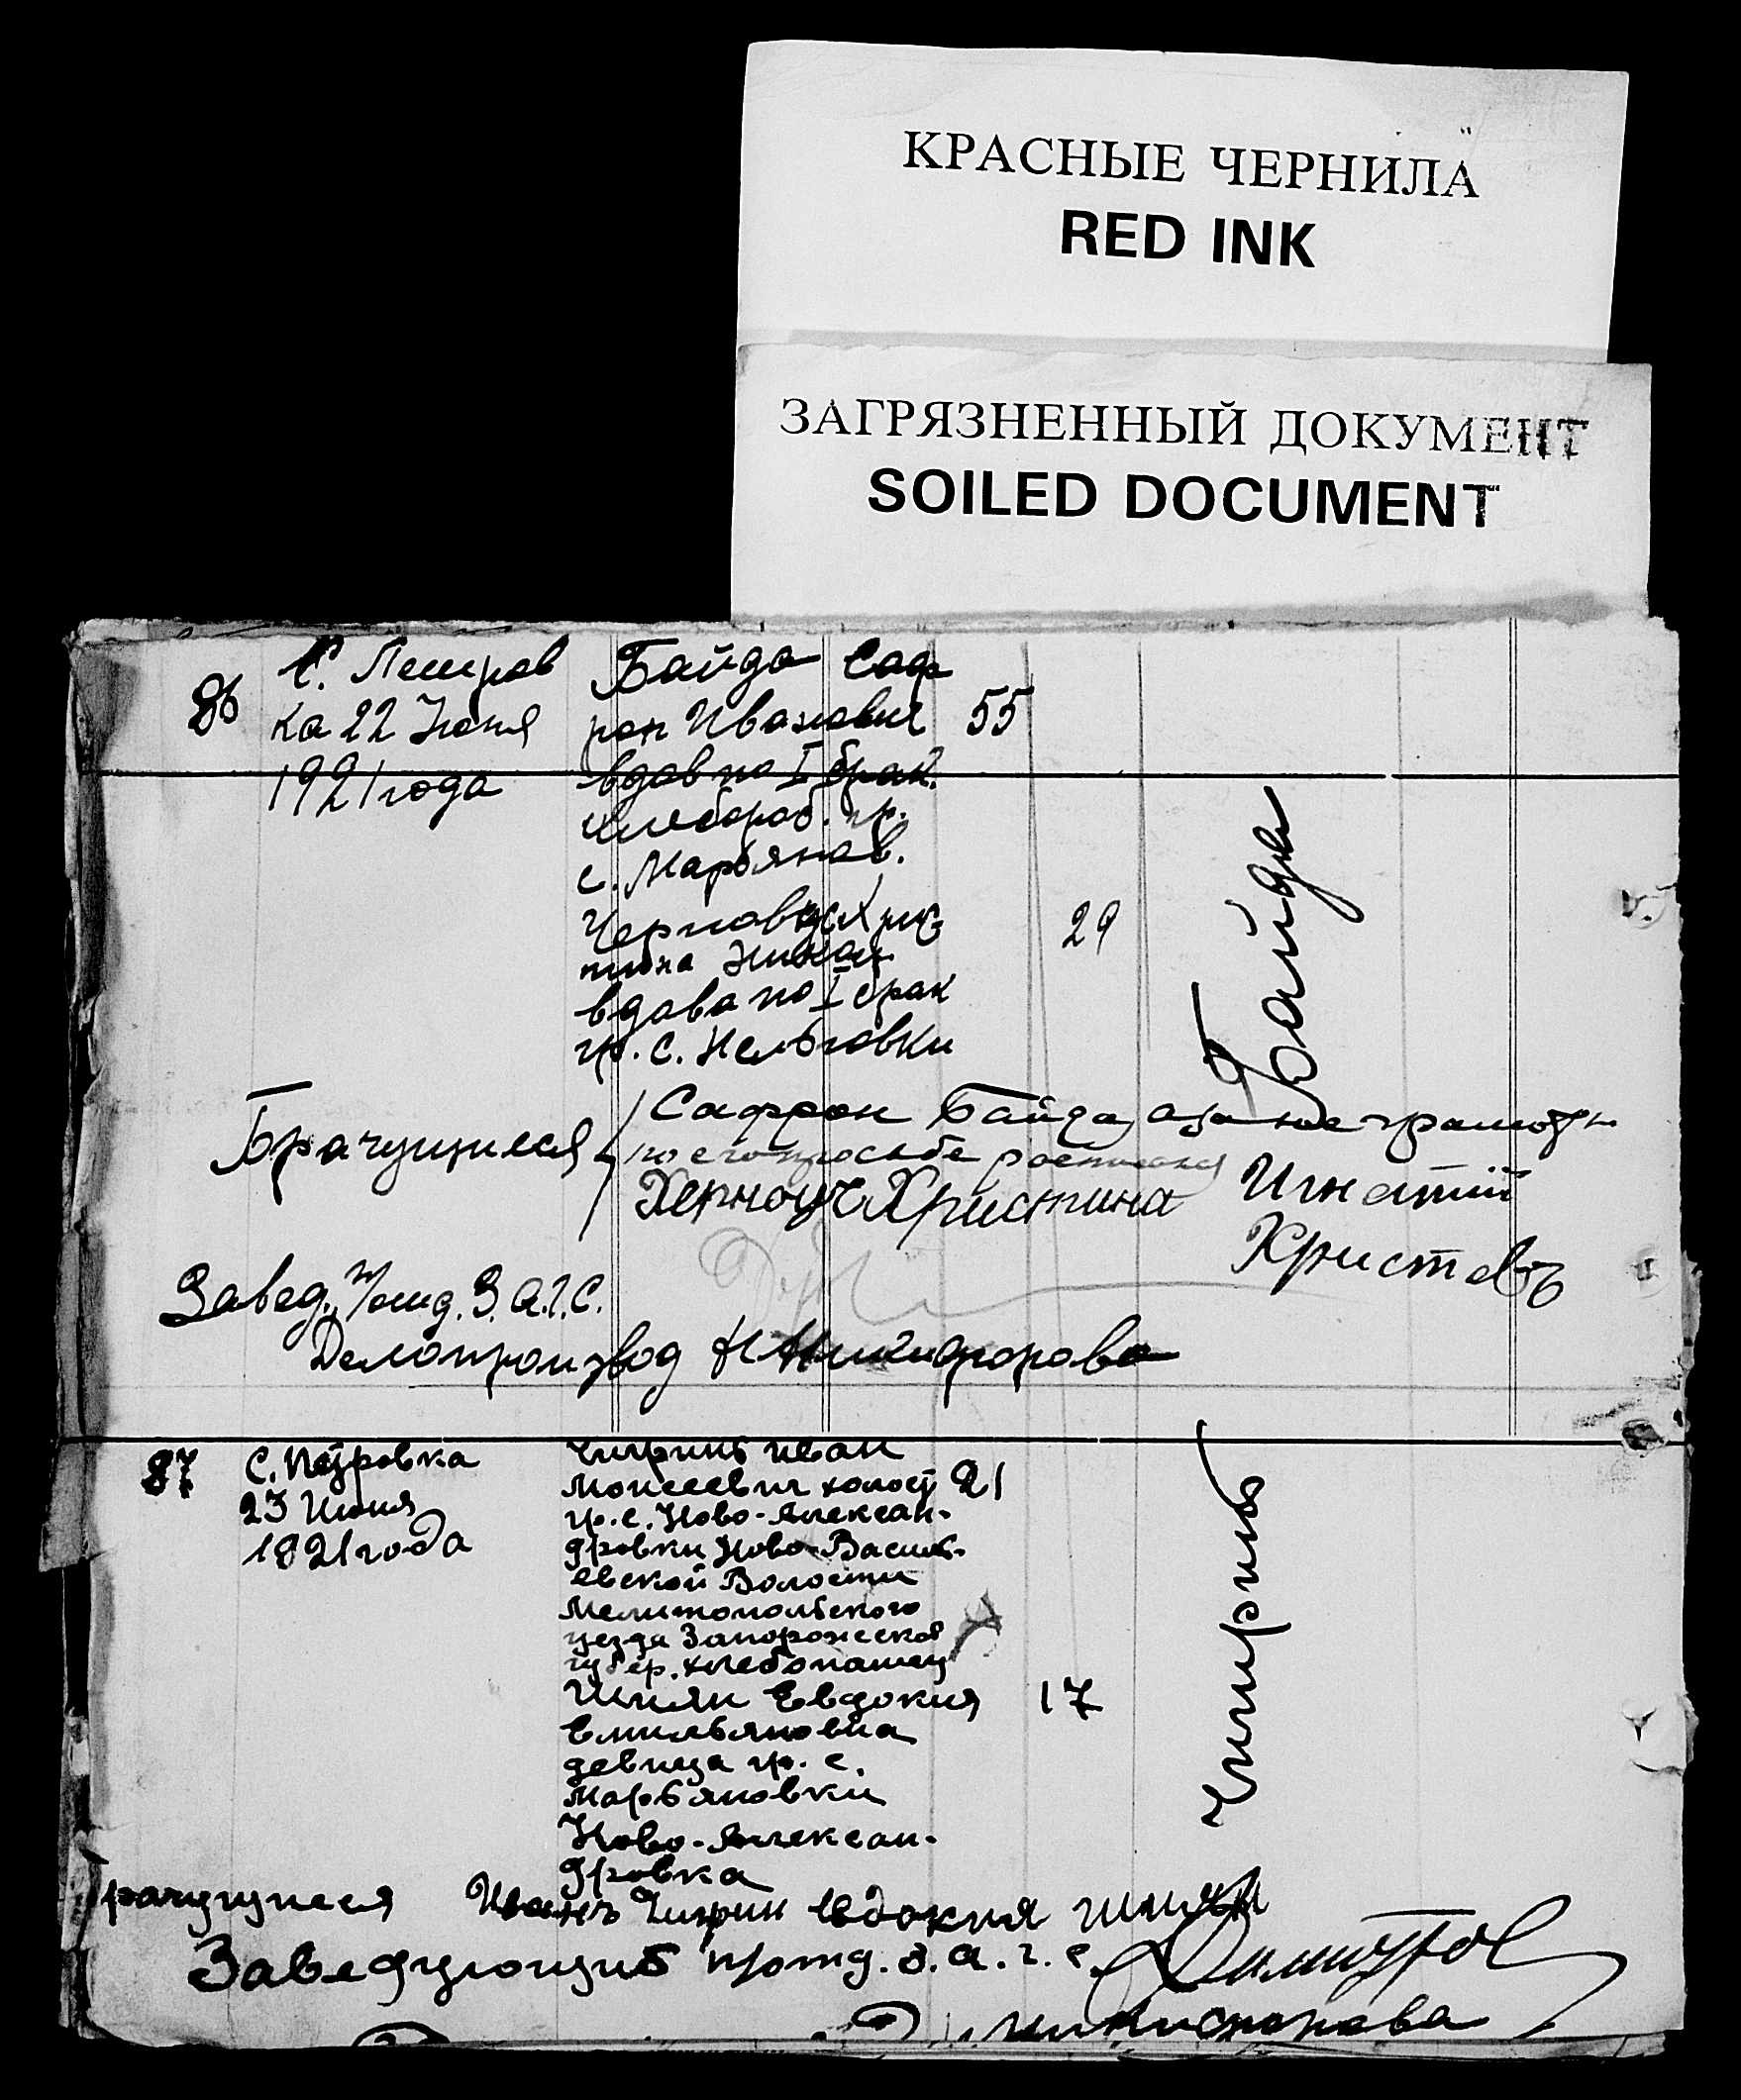 КРАСНЫЕ ЧЕРНИЛА
RED INK
ЗАГРЯЗНЕННЫЙ ДОКУМЕНТ
SOILED DOCUMENT
86
С. Петров
ка 22 Июня
1921 года
Байда Саф
рон Иванович 55
вдов по I брак.
хлебороб. гр.
с. Марьянов.
Христина
29
вдова по I брак
гр. с.
Байда
Брачущиеся
Сафрон Байда, а за не грамотн
по его просьбе
Христина
Игнатий
Кристевъ
Завед. П/отд. З.А.Г.С.
Делопроизвод Н Никифорова
87
С. Петровка
23 Июня
1921 года
Чигринь Иван
Моисеевич холост 21
гр. с. Ново-Алексан-
дровки Ново-Василь-
евской Волости
Мелитопольского
уезда Запорожской
губер. хлебопашец
Шиян Евдокия 17
Емильяновна
девица гр. с.
Марьяновки
Ново-Алексан-
дровка
Чигринь
рачущиеся Иванъ Чигрин Евдокия Шиян
Заведующиб П/отд. З.А.Г.С.
Никифорова